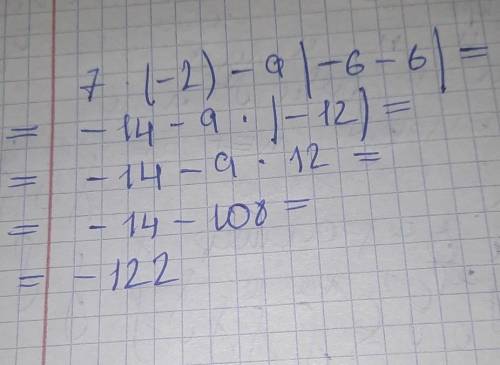 7 · (-2) - 9 |-6 - 6| =
= -14 - 9 · |-12| =
= -14 - 9 · 12 =
= -14 - 108 =
= -122